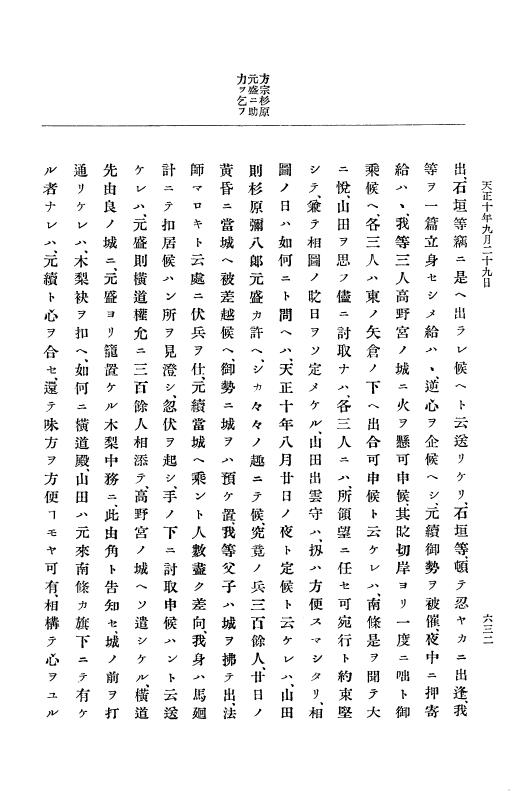 天正十年九月二十九日
六三二
方宗杉原
元盛ニ助
力ヲ乞フ
出、石垣等竊ニ是ヘ出ラレ候ヘト云送リケリ、石垣等、頓テ忍ヤカニ出逢、我
等ヲ一篇立身セシメ給ハヽ、逆心ヲ企候ヘシ、元續御勢ヲ被催、夜中ニ押寄
給ハヽ、我等三人高野宮ノ城ニ火ヲ懸可申候其時切岸ヨリ一度ニ咄ト御
乘候ヘ、各三人ハ東ノ矢倉ノ下ヘ出合可申候ト云ケレハ、南條是ヲ聞テ大
ニ悅、山田ヲ思フ儘ニ討取ナハ、各三人ニハ、所領望ニ任セ可宛行ト約束堅
シテ、兼テ相圖ノ昵日ヲソ定メケル、山田出雲守ハ、扨ハ方便スマシタリ、相
圖ノ日ハ如何ニト問ヘハ、天正十年八月廿日ノ夜ト定候ト云ケレハ、山田
則杉原彌八郞元盛カ許ヘ、シカ々々ノ趣ニテ候、究竟ノ兵三百餘人、廿日ノ
黃昏ニ當城ヘ被差越候ヘ、御勢ニ城ヲハ預ケ置、我等父子ハ城ヲ拂テ出、法
師マロキト云處ニ伏兵ヲ仕、元續當城ヘ乘ント人數盡ク差向我身ハ馬廻
計ニテ扣居候ハン所ヲ見澄シ、忽伏ヲ起シ、手ノ下ニ討取申候ハント云送
ケレハ、元盛則橫道權允ニ三百餘人相添テ、高野宮ノ城ヘソ遣シケル、橫道
先由良ノ城ニ、元盛ヨリ籠置ケル木梨中務ニ、此由角ト告知セ、城ノ前ヲ打
通リケレハ、木梨袂ヲ扣ヘ、如何ニ橫道殿、山田ハ元來南條カ旗下ニテ有ケ
ル者ナレハ、元續ト心ヲ合セ、還テ味方ヲ方便ヿモヤ可有、相構テ心ヲユル